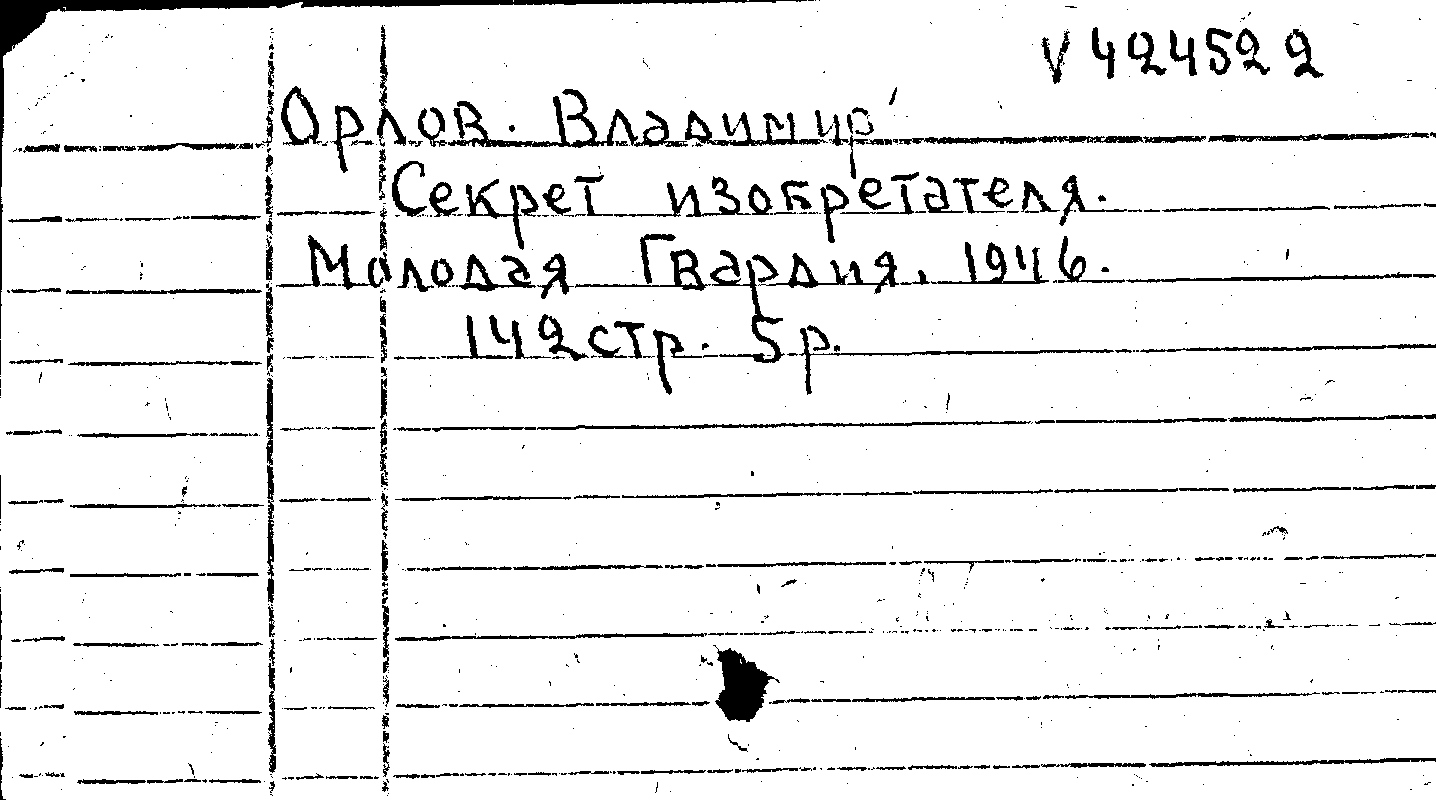 V 424522
Орлов. Владимир
Секрет изобретателя.
Молодая Гвардия. 1946.
142 стр. 5 р.